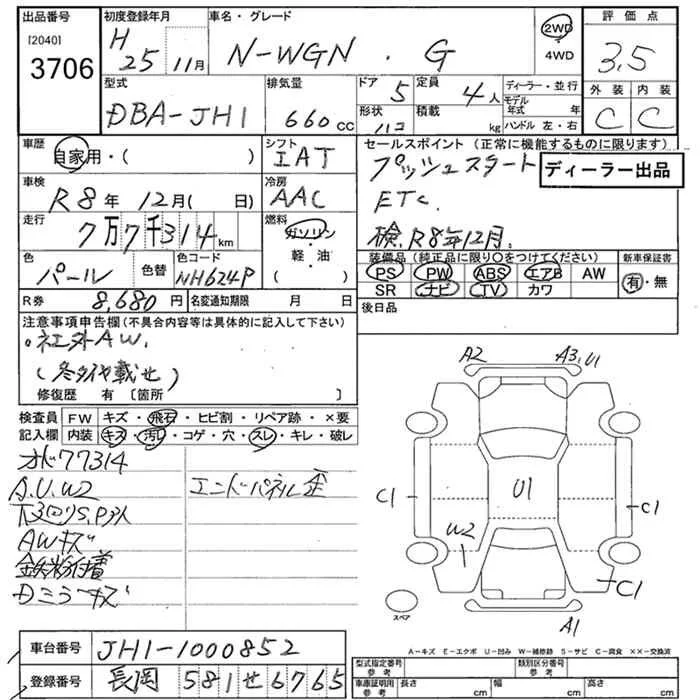 出品番号 初度登録年月 車名・グレード 評価点
[2040] 3706 H 25 11月 N-WGN . G 2WD ・ 4WD 3,5
型式 排気量 ドア 5 定員 4人 ディーラー・並行 外装 内装
DBA-JH1 660cc 形状 積載 kg モデル年式 年 ハンドル 左・右 C C
車歴 自家用・( ) シフト IAT セールスポイント (正常に機能するものに限ります)
プッシュスタート ディーラー出品
車検 R8年 12月( 日) 冷房 AAC ETC.
走行 7万7千314km 燃料 ガソリン・軽油( ) 検.R8年12月.
色 パール 色替 色コード NH624P
装備品 (純正品に限り○をつけてください) 新車保証書
PS PW ABS エアB AW 有・無
SR ナビ TV カワ
R券 8,680円 名変通知期限 月 日 後日品
注意事項申告欄 (不具合内容等は具体的に記入して下さい)
。社外AW.
(冬タイヤ載せ)
修復歴 有〔箇所 〕
検査員記入欄 FW キズ・飛石・ヒビ割・リペア跡・×要
内装 キズ・汚レ・コゲ・穴・スレ・キレ・破レ
オド77314
A.U.W2 エンドパネル歪
下回りS,P3ス
AWキズ
鉄粉付着
Dミラーキズ
A2 A3,U1
C1 U1 C1
W2 C1
スペア A1
A-キズ E-エクボ U-凹み W-補修跡 S-サビ C-腐食 ××-交換済
車台番号 JH1-1000852
登録番号 長岡 581せ6765
型式指定番号 参考 類別区分番号 参考
車庫証明用 参考 長さ cm 幅 cm 高さ cm